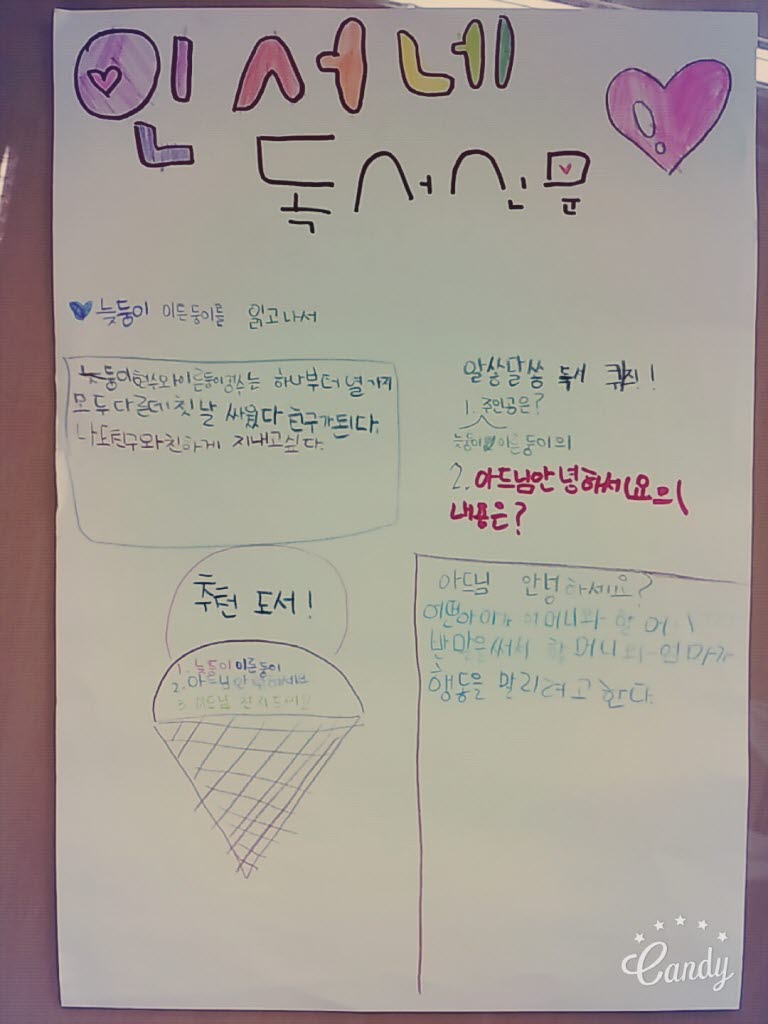 인서네
독서신문
늦둥이 이른둥이를 읽고나서
늦둥이현수와이른둥이경수는 하나부터 열가지
모두다른데 첫날 싸웠다 친구가된다.
나도친구와친하게 지내고싶다.
알쏭달쏭 독서 퀴즈!
1. 주인공은?
늦둥이 이른둥이의
2. 아드님안녕하세요의
내용은?
추천 도서!
1. 늦둥이이른둥이
2. 아드님안녕하세요
3. 아드님 진지드세요
아드님 안녕하세요?
어떤아이가 어머니와 할머니
반말을써서 할머니와 엄마가
행동을 말리려고한다.
Candy